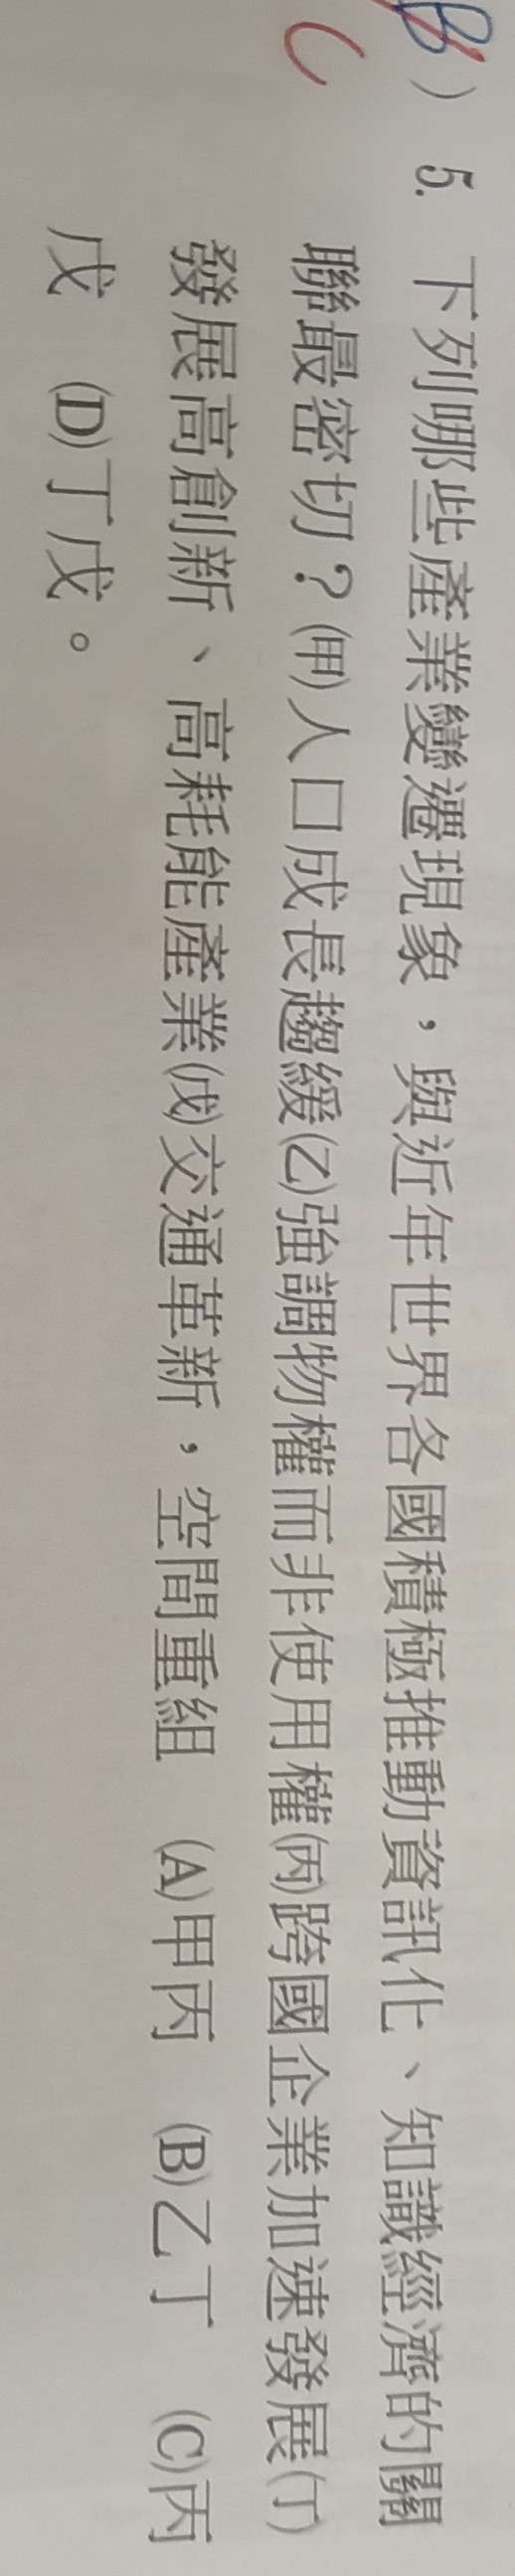 B ) 5. 下列哪些產業變遷現象，與近年世界各國積極推動資訊化、知識經濟的關
C 聯最密切？(甲)人口成長趨緩(乙)強調物權而非使用權(丙)跨國企業加速發展(丁)
發展高創新、高耗能產業(戊)交通革新，空間重組 (A)甲丙 (B)乙丁 (C)丙
戊 (D)丁戊。